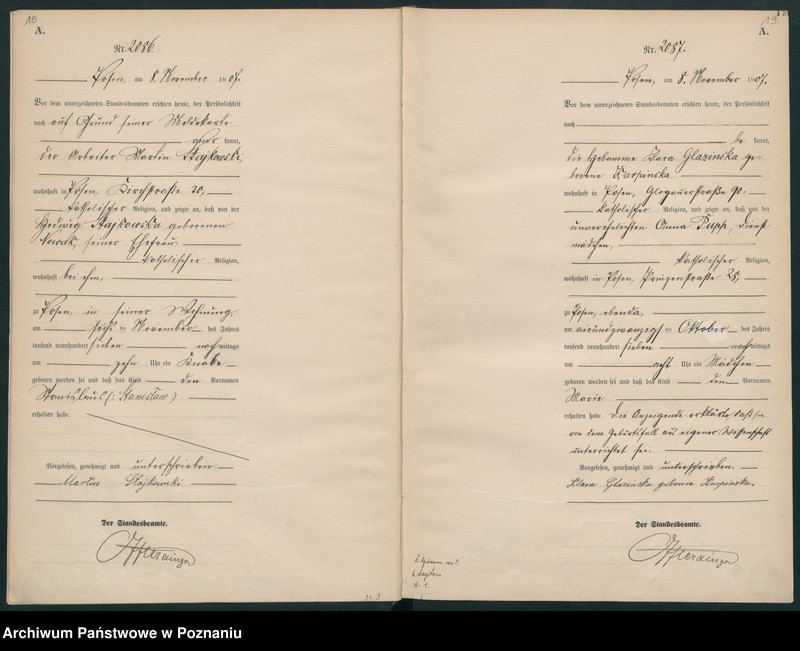 15
A.
Nr. 2086.
Posen, am 8. November 1907.
Vor dem unterzeichneten Standesbeamten erschien heute, der Persönlichkeit
nach auf Grund seiner Meldekarte
kannt,
der Arbeiter Martin Stajkowski,
wohnhaft in Posen, Kirchstraße 20,
katholischer Religion, und zeigte an, daß von der
Hedwig Stajkowska geborenen
Nowak, seiner Ehefrau
katholischer Religion,
wohnhaft bei ihm,
zu Posen, in seiner Wohnung
am sechsten November des Jahres
tausend neunhundert sieben nachmittags
um zehn Uhr ein Knabe
geboren worden sei und daß das Kind den Vornamen
Stanislaus (: Stanisław :)
erhalten habe.
Vorgelesen, genehmigt und unterschrieben
Martin Stajkowski
Der Standesbeamte.
19
A.
Nr. 2087.
Posen, am 8. November 1907.
Vor dem unterzeichneten Standesbeamten erschien heute, der Persönlichkeit
nach
be kannt,
die Hebamme Klara Glazinska ge-
borene Karpinska
wohnhaft in Posen, Glogauerstraße 90.
katholischer Religion, und zeigte an, daß von der
unverehelichten Anna Pupp, Dienst
mädchen,
katholischer Religion,
wohnhaft in Posen, Prinzenstraße 25,
zu Posen, ebenda,
am vierundzwanzigsten Oktober des Jahres
tausend neunhundert sieben nachmittags
um acht Uhr ein Mädchen
geboren worden sei und daß das Kind den Vornamen
Marie
erhalten habe. Die Anzeigende erklärte, daß sie
von dem Geburtsfall aus eigener Wissenschaft
unterrichtet sei.
Vorgelesen, genehmigt und unterschrieben.
Klara Glazinska geborene Karpinska.
Der Standesbeamte.
Archiwum Państwowe w Poznaniu